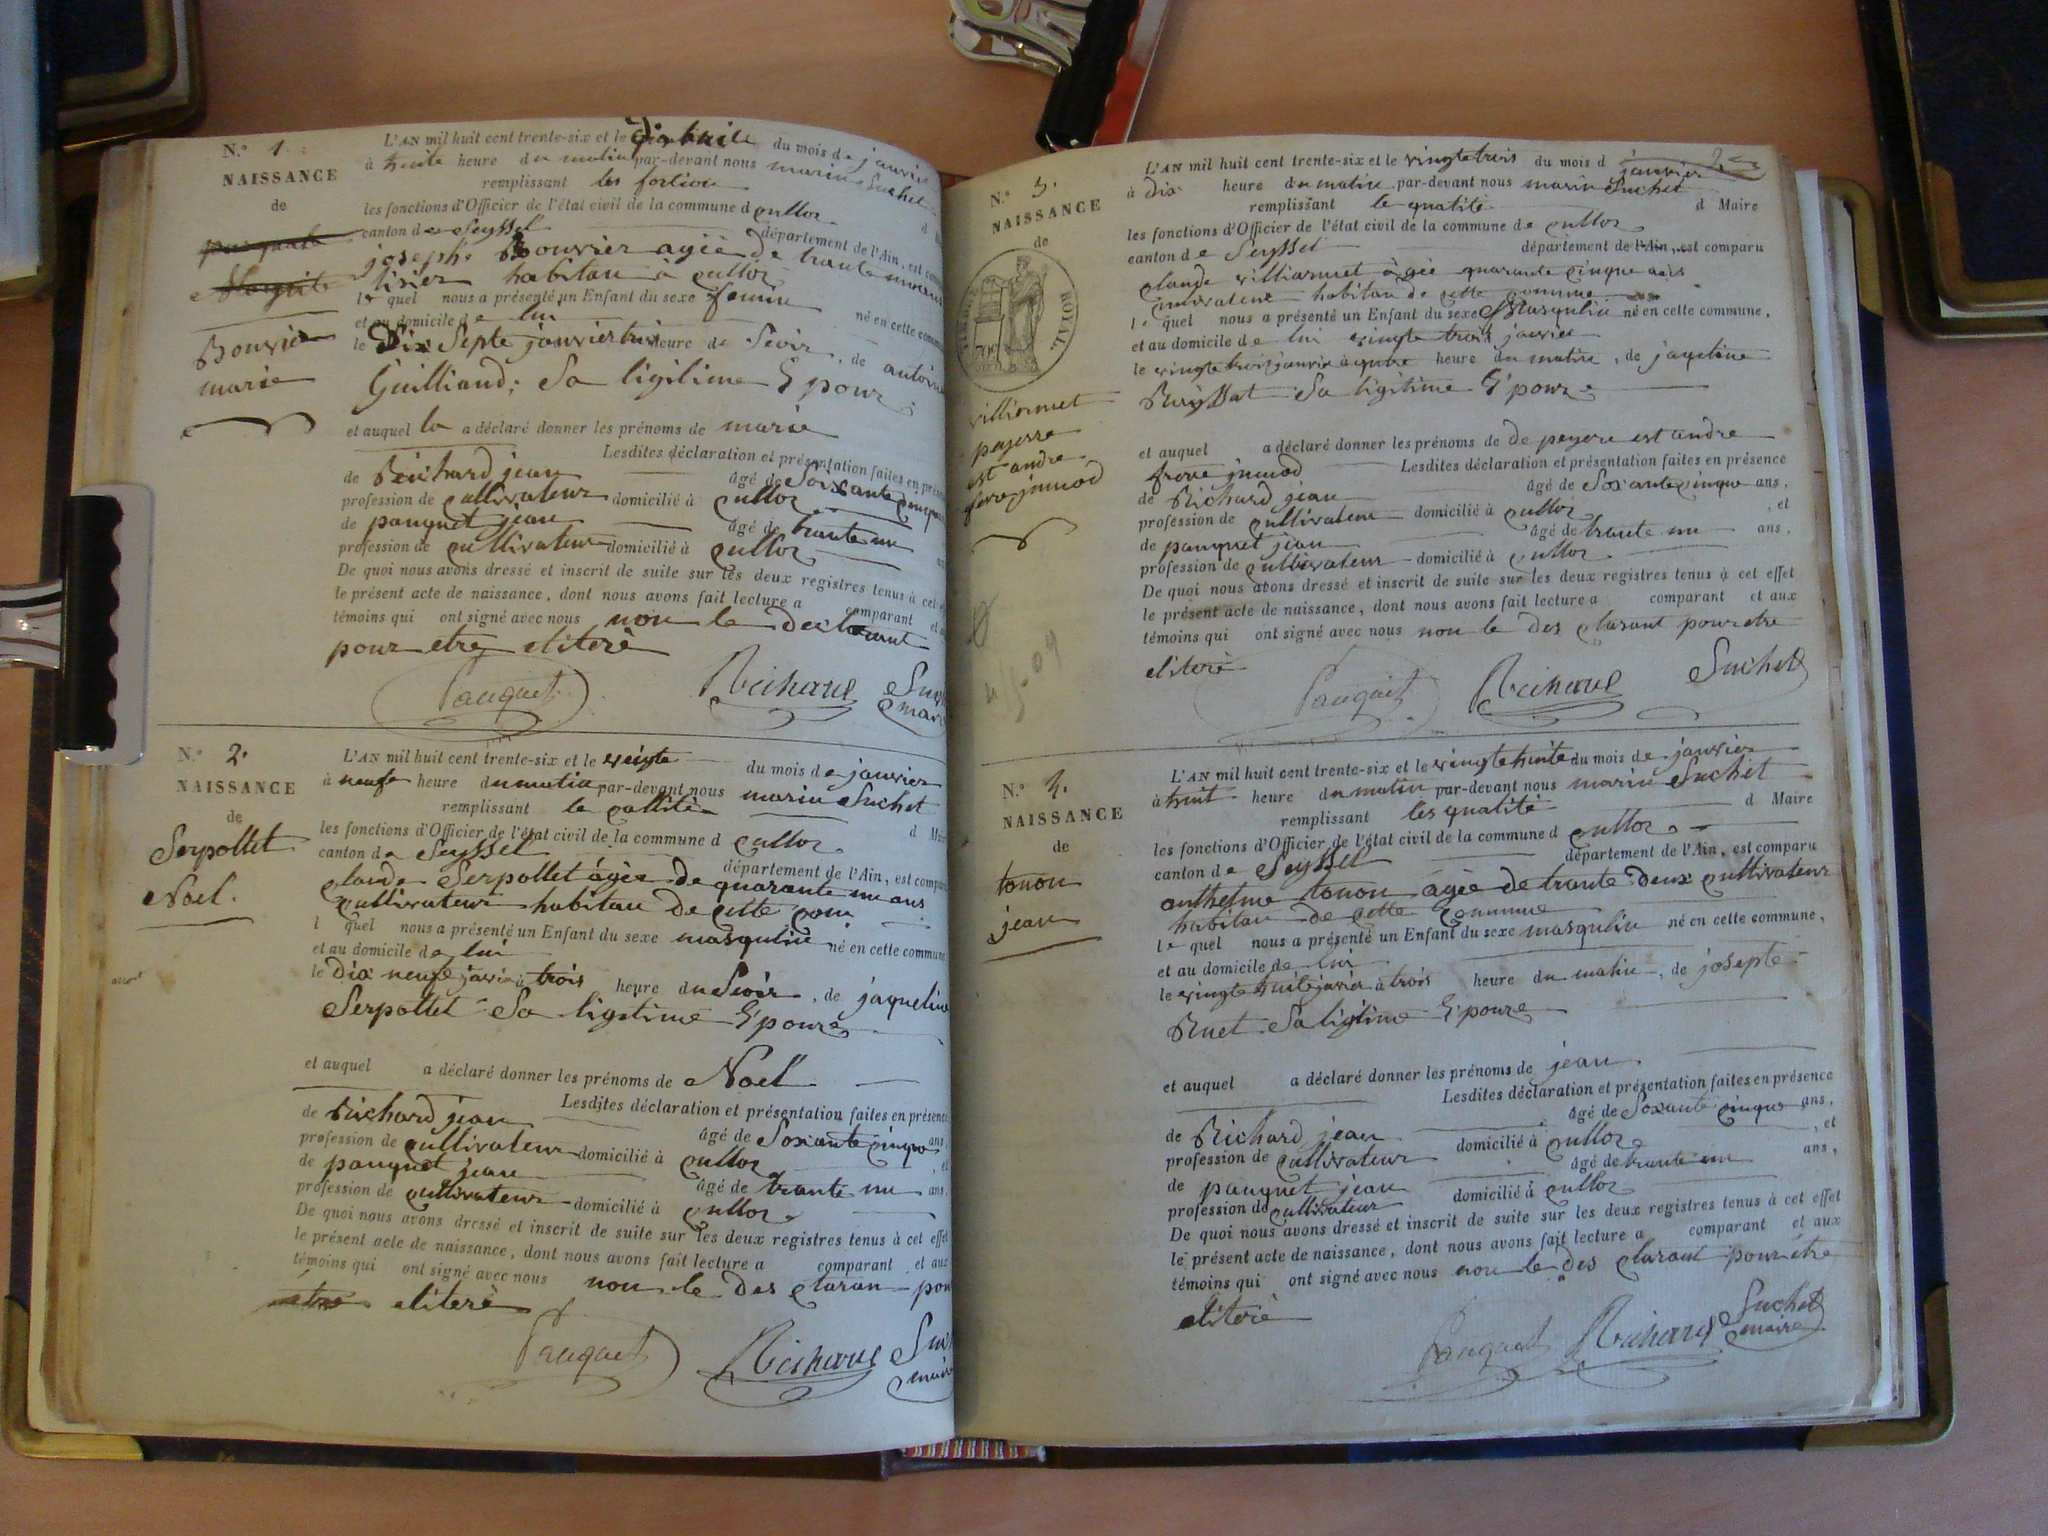 N.° 1
NAISSANCE
de
Bouvier
marie
L'AN mil huit cent trente-six et le dix huit du mois de janvier
à huite heure du matin par-devant nous marin Suchet
remplissant les fonction
les fonctions d'Officier de l'état civil de la commune d culloz
canton de Seyssel département de l'Ain, est
joseph Bouvier agèe de trante
habitan à culloz
le quel nous a présenté un Enfant du sexe femin né en cette
et au domicile de lui
le Dix Septe janvier heure de Soir, de antoine
Guilliand, Sa ligitime Epouze
et auquel la a déclaré donner les prénoms de marie
Lesdites déclaration et présentation faites en
de Richard jean âgé de Soixante
profession de cultivateur domicilié à culloz
de pauquet jean âgé de trante un
profession de cultivateur domicilié à culloz
De quoi nous avons dressé et inscrit de suite sur les deux registres tenus à cet
le présent acte de naissance, dont nous avons fait lecture a comparant et
témoins qui ont signé avec nous non le declarant
pour etre eliterè
Pauquet Richard
N.° 2.
NAISSANCE
de
Serpollet
Noel.
L'AN mil huit cent trente-six et le veingte du mois de janvier
à neufe heure du matin par-devant nous marin Suchet
remplissant le callitè
les fonctions d'Officier de l'état civil de la commune d culloz d
canton de Seyssel département de l'Ain, est
claude Serpollet ágèe de quarante un ans
cultivateur habitan de cette
l quel nous a présenté un Enfant du sexe masquline né en cette commune
et au domicile de lui
le Dix neufe à trois heure du Soir, de jaqueline
Serpollet Sa ligitime Epouze
et auquel a déclaré donner les prénoms de Noel
Lesdites déclaration et présentation faites en présence
de Richard jean âgé de Soxante cinque ans,
profession de cultivateur domicilié à culloz, et
de pauquet jean âgé de trante un ans,
profession de cultivateur domicilié à culloz
De quoi nous avons dressé et inscrit de suite sur les deux registres tenus à cet effet
le présent acte de naissance, dont nous avons fait lecture a comparant et aux
témoins qui ont signé avec nous non le des claran pour
eliterè
Pauquet Richard
N.° 3.
NAISSANCE
de
ROYAL.
villiermet
est andre
L'AN mil huit cent trente-six et le vingte trois du mois d janvier
à Dix heure du matin par-devant nous marin Suchet
remplissant le qualité d Maire
les fonctions d'Officier de l'état civil de la commune de culloz
canton de Seyssel département de l'Ain, est comparu
claude villiermet àgèe quarante cinque ans
cultivateur habitan de cette commune
le quel nous a présenté un Enfant du sexe Masquline né en cette commune,
et au domicile de lui vingte trois janvier
le vingte trois janvier à heure du matin, de jaqeline
Sa ligitime Epouze
et auquel a déclaré donner les prénoms de de est andre
Lesdites déclaration et présentation faites en présence
de Richard jean âgé de Soxante cinque ans,
profession de cultivateur domicilié à culloz, et
de pauquet jean âgé de trante un ans,
profession de cultivateur domicilié à culloz
De quoi nous avons dressé et inscrit de suite sur les deux registres tenus à cet effet
le présent acte de naissance, dont nous avons fait lecture a comparant et aux
témoins qui ont signé avec nous non le des clarant pour etre
eliterè
Pauquet Richard Suchet
N.° 4.
NAISSANCE
de
tonon
jean
L'AN mil huit cent trente-six et le vingte huite du mois de janvier
à huit heure du matin par-devant nous marin Suchet
remplissant les qualité d Maire
les fonctions d'Officier de l'état civil de la commune d culloz
canton de Seyssel département de l'Ain, est comparu
anthelme tonon àgèe de trante deux cultivateur
habitan de cette commune
le quel nous a présenté un Enfant du sexe masqulin né en cette commune,
et au domicile de lui
le vingte huite à trois heure du matin, de josepte
Ruet Sa ligitime Epouze
et auquel a déclaré donner les prénoms de jean
Lesdites déclaration et présentation faites en présence
de Richard jean âgé de Soxante cinque ans,
profession de cultivateur domicilié à culloz, et
de pauquet jean âgé de trante un ans,
profession de cultivateur domicilié à culloz
De quoi nous avons dressé et inscrit de suite sur les deux registres tenus à cet effet
le présent acte de naissance, dont nous avons fait lecture a comparant et aux
témoins qui ont signé avec nous non le des claran pour étre
eliterè
Pauquet Richard Suchet
maire